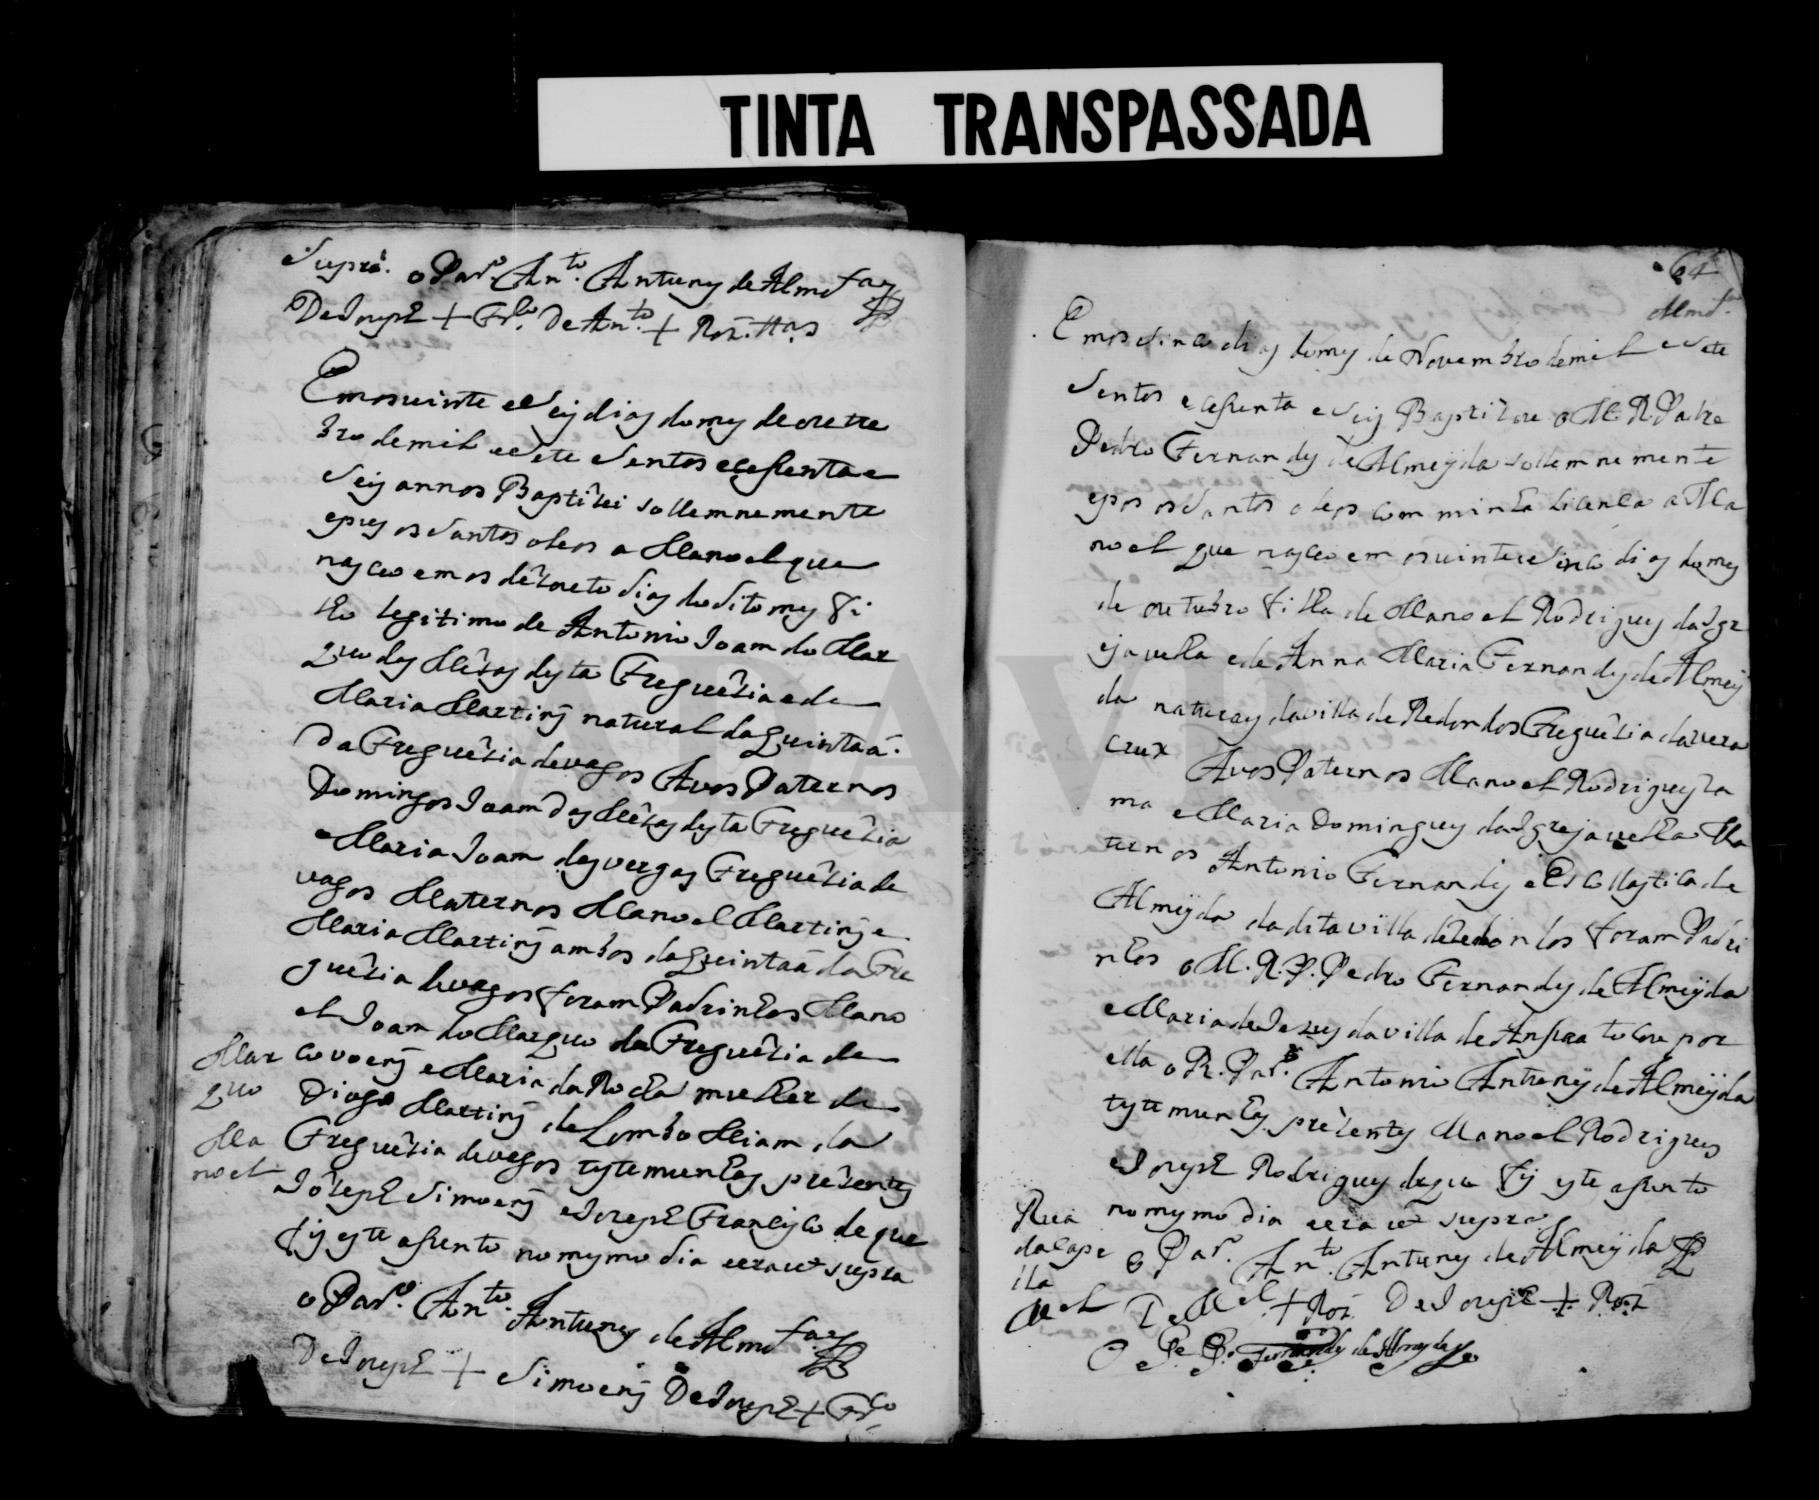 TINTA TRANSPASSADA
Supra. o Parº. Anto. Antunes de Almdª
De Joseph + Frco. De Anto. +
Emos vinte e seis dias do mes de outu
bro de mil e sete sentos e cessenta e
seis annos Baptizei sollemnemente
e pus os santos oleos a Manoel que
nasceo em os dezoito dias do dito mes fi
lho legitimo de Antonio Joam do Mar
quo das Mezas desta Freguezia e de
Maria Martins natural da Quintaã
da Freguezia de vagos Avos Paternos
Domingos Joam das Mezas desta Freguezia
e Maria Joam das vergas Freguezia de
vagos Maternos Manoel Martins e
Maria Martins ambos da Quintaã da Fre
guezia de vagos foram Padrinhos Mano
el Joam do Marquo da Freguezia de
covoens e Maria da Rocha mulher de
Diogo Martins de Lombo Miam da
Freguezia de vagos testemunhas prezentes
Jozeph Simoens e Joseph Francisco de que
fis este asento no mesmo dia e era ut supra
o Parº. Anto. Antunes de Almdª
De Joseph + Simoens De Joseph + Frco
Mar
quo
Ma
noel
64
Almdª
Emos sinco dias do mes de Novembro de mil e sete
sentos e cesenta e seis Baptizou o M. R. Padre
Pedro Fernandes de Almeyda sollemnemente
e pos os santos oleos com minha licença a Ma
noel que nasceo em os vinte e sinco dias do mes
de outubro filho de Manoel Rodrigues da Igr
eja velha e de Anna Maria Fernandes de Almey
da naturais da villa de Redondos Freguezia da vera
crux Avos Paternos Manoel Rodrigues
ma e Maria Domingues da Igreja velha Ma
ternos Antonio Fernandes e Escollastica de
Almeyda da dita villa de Redondos foram Padri
nhos o M. R. P. Pedro Fernandes de Almeyda
e Maria de Jezus da villa de Ansiaa tocou por
ella o R. Parº. Antonio Antunes de Almeyda
testemunhas prezentes Manoel Rodrigues
e Joseph Rodrigues de que fis este asento
no mesmo dia e era ut supra
o Parº. Anto. Antunes de Almeyda
De Mel + Roz De Joseph + Roz
O Pe Po. Fernandes de Almeyda
Rua
da Cape
lla
Mel